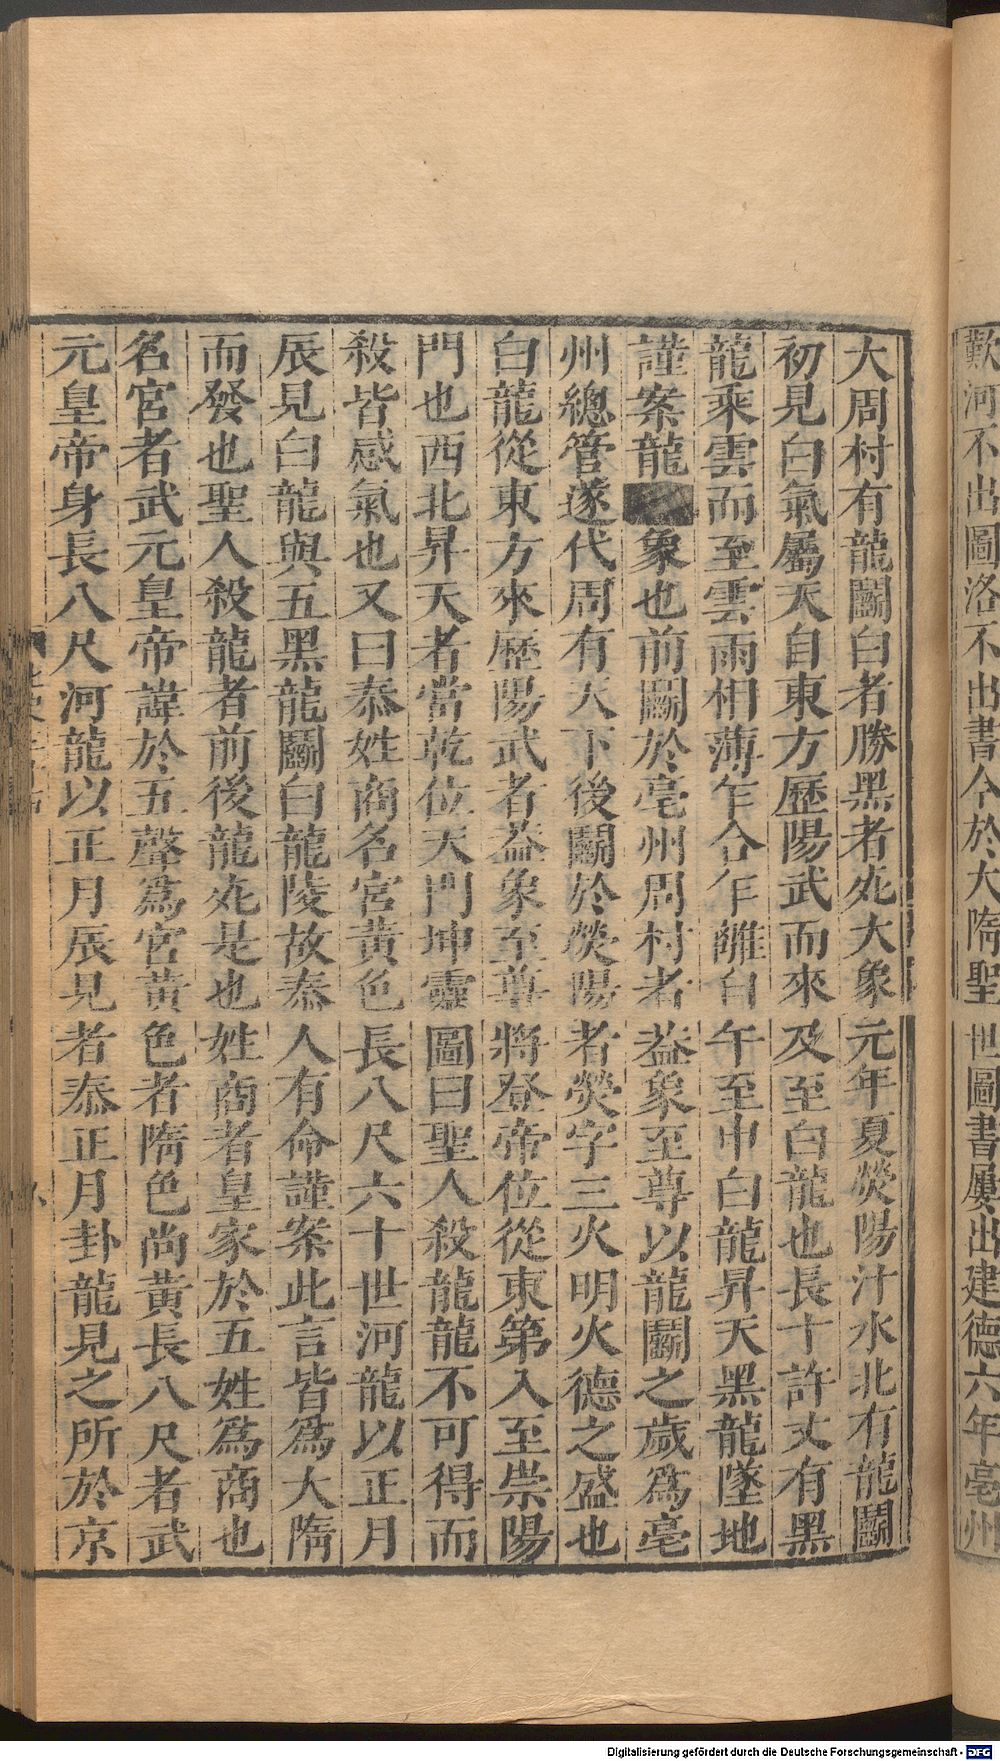 歎河不出圖洛不出書今於大隋聖世圖書屢出建德六年亳州
大周村有龍鬭白者勝黑者死大象元年夏熒陽汁水北有龍鬭
初見白氣屬天自東方歷陽武而來及至白龍也長十許丈有黑
龍乘雲而至雲雨相薄乍合乍離自午至申白龍昇天黑龍墜地
謹案龍象也前鬭於亳州周村者葢象至尊以龍鬭之歲爲亳
州總管遂代周有天下後鬭於熒陽者熒字三火明火德之盛也
白龍從東方來歷陽武者葢象至尊將登帝位從東第入至崇陽
門也西北昇天者當乾位天門坤靈圖曰聖人殺龍龍不可得而
殺皆感氣也又曰泰姓商名宮黃色長八尺六十世河龍以正月
辰見白龍與五黑龍鬭白龍陵故泰人有命謹案此言皆爲大隋
而發也聖人殺龍者前後龍死是也姓商者皇家於五姓爲商也
名宮者武元皇帝諱於五聲爲宮黃色者隋色尚黃長八尺者武
元皇帝身長八尺河龍以正月辰見者泰正月卦龍見之所於京
Digitalisierung gefördert durch die Deutsche Forschungsgemeinschaft - DFG